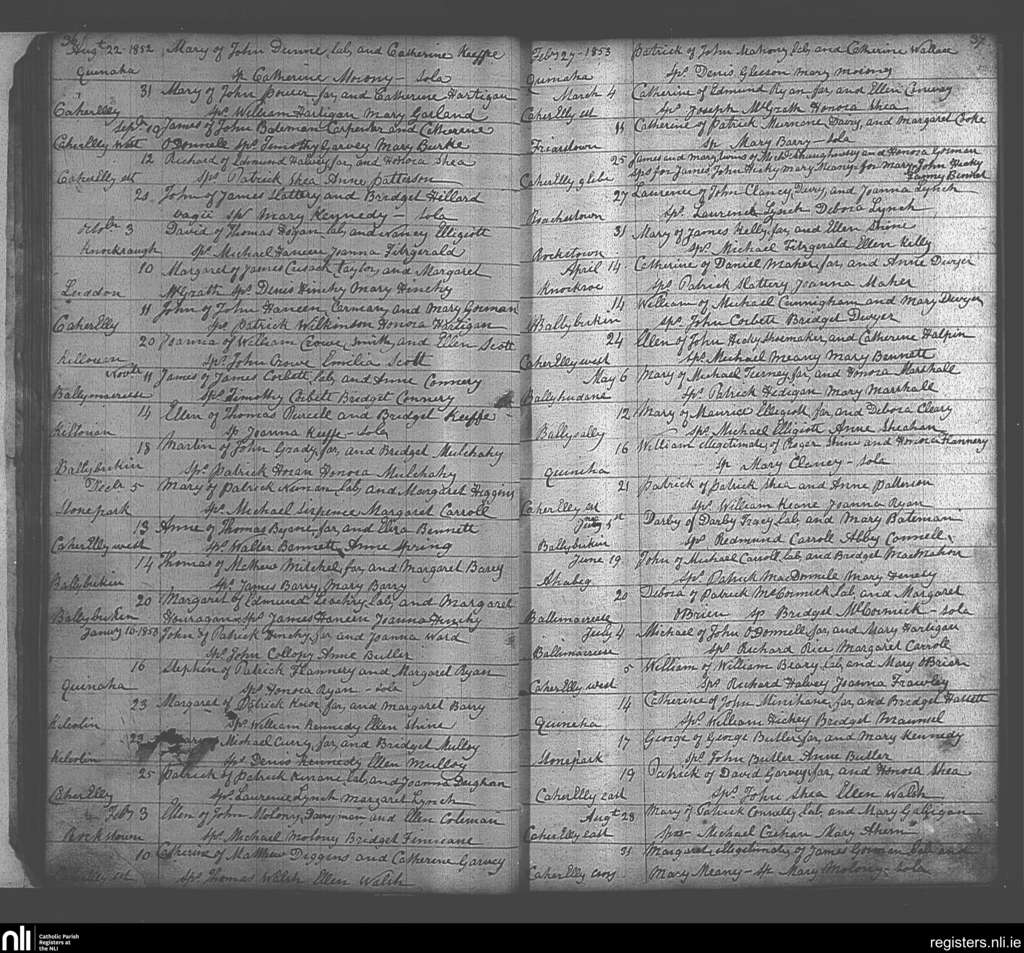 36
Augt 22 - 1852 Mary of John Dunne lab, and Catherine Keeffe
Quinaha Sp Catherine Morony - Sola
31 Mary of John Power far, and Catherine Hartigan
CaherElly Sps William Hartigan Mary Garland
Septr 10 James of John Bateman Carpenter and Catherine
CaherElly West O'Donnell Sps Timothy Garvey Mary Burke
12 Richard of Edmund Halvey far, and Honora Shea
CaherElly est Sps Patrick Shea Anne Patterson
20 John of James Slattery and Bridget Hillard
vagii Sps Mary Kennedy - Sola
Octobr 3 David of Thomas Hogan lab, and Nancy Elligott
Knockeaugh Sps Michael Haneen Joanna Fitzgerald
10 Margaret of James Cusack Taylor, and Margaret
Luddon McGrath Sps Denis Hinchy Mary Hinchy
11 John of John Haneen Carman, and Mary Gorman
CaherElly Sps Patrick Wilkinson Honora Hartigan
20 Joanna of William Crowe, Smith, and Ellen Scott
Killovan Sps John Crowe Emelia Scott
Novbr 11 James of James Corbett lab, and Anne Connery
Ballymacreese Sps Timothy Corbett Bridget Connery
14 Ellen of Thomas Purcell and Bridget Keeffe
Killonan Sp Joanna Keeffe - Sola
18 Martin of John Grady, far, and Bridget Mulchahy
Ballybrikin Sps Patrick Horan Honora Mulchahy
Decbr 5 Mary of Patrick Kirwan lab, and Margaret Higgins
Stonepark Sps Michael Sixpence Margaret Carroll
13 Anne of Thomas Byrne, far, and Eliza Bennett
CaherElly west Sps Walter Bennett Anne Spring
14 Thomas of Mathew Mitchel, far, and Margaret Barry
Ballybrikin Sps James Barry Mary Barry
20 Margaret of Edmund Leachy, lab, and Margaret
Ballybrikin Houragan Sps James Haneen Joanna Hinchy
January 10 - 1853 John of Patrick Hinchy, far and Joanna Ward
Sps John Collopy Anne Butler
16 Stephen of Patrick Flannery and Margaret Ryan
Quinaha Sps Honora Ryan - Sola
23 Margaret of Patrick Knox far, and Margaret Barry
Kilcolin Sps William Kennedy Ellen Shine
23 Michael Curry, far, and Bridget Mulloy
Kilcolin Sps Denis Kennedy Ellen Mulloy
25 Patrick of Patrick Kinane lab, and Joanna
CaherElly Sps Laurence Lynch Margaret Lynch
Feby 3 Ellen of John Molony, Dairyman and Ellen Coleman
Rockstown Sps Michael Molony Bridget Finneane
10 Catherine of Matthew Diggins and Catherine Garvey
CaherElly est Sps Thomas Welsh Ellen Walsh
37
Feby 27 - 1853 Patrick of John Mahony lab, and Catherine Wallace
Quinaha Sps Denis Gleeson Mary Morony
March 4 Catherine of Edmund Ryan far, and Ellen
CaherElly est Sps Joseph McGrath Honora Shea
11 Catherine of Patrick Murnane Dairy, and Margaret Cooke
Friarstown Sp Mary Barry - Sola
25 James and Mary, twins of and Honora Gorman
CaherElly glebe Sps for James John Hickey Mary Meany - for Mary John Hickey
Fanny Bennet
27 Laurence of John Clancy, Dairy, and Joanna Lynch
Rochestown Sps Laurence Lynch Debora Lynch
31 Mary of James Kelly, far, and Ellen Shine
Rockstown Sps Michael Fitzgerald Ellen Kelly
April 14 Catherine of Daniel Maher, far, and Anne Dwyer
Knockroe Sps Patrick Slattery Joanna Maher
14 William of Michael Cunningham and Mary Dwyer
Ballybrikin Sps John Corbett Bridget Dwyer
24 Ellen of John Hicky Shoemaker, and Catherine Halpin
CaherElly west Sps Michael Meany Mary Bennett
May 6 Mary of Michael Tierney, far, and Honora Marshall
Ballyhudane Sps Patrick Hedigan Mary Marshall
12 Mary of Maurice Elligott, far, and Debora Cleary
Ballysally Sps Michael Elligott Anne Sheahan
16 William illegitimate, of Roger Shine and Honora Flannery
Quineha Sp Mary Clancy - Sola
21 Patrick of Patrick Shea and Anne Patterson
CaherElly est Sps William Keane Joanna Ryan
June 1st Darby of Darby Tracy, lab, and Mary Bateman
Ballybrikin Sps Redmund Carroll Abby Connell
June 19 John of Michael Carroll, lab, and Bridget MacMahon
Ahabeg Sps Patrick MacDonnell Mary Henely
20 Debora of Patrick McCormick lab, and Margaret
Ballimacreese O'Brien Sp Bridget McCormick - Sola
July 4 Michael of John O'Donnell, far, and Mary Hartigan
Ballimacreese Sps Richard Rice Margaret Carroll
5 William of William Beary, lab, and Mary O'Brien
CaherElly west Sps Richard Halvey Joanna Frawley
14 Catherine of John Minihane, far, and Bridget Hassett
Quineha Sps William Hickey Bridget Maunsel
17 George of George Butler, far, and Mary Kennedy
Stonepark Sps John Butler Anne Butler
19 Patrick of David Garvey, far, and Honora Shea
CaherElly east Sps John Shea Ellen Walsh
Augt 28 Mary of Patrick Connelly, lab, and Mary Galligan
CaherElly east Sps Michael Cashan Mary Ahern
31 Margaret, illegitimate, of James Gorman lab and
CaherElly cross Mary Meany - Sp Mary Molony - Sola
nli Catholic Parish
Registers at
the NLI
registers.nli.ie